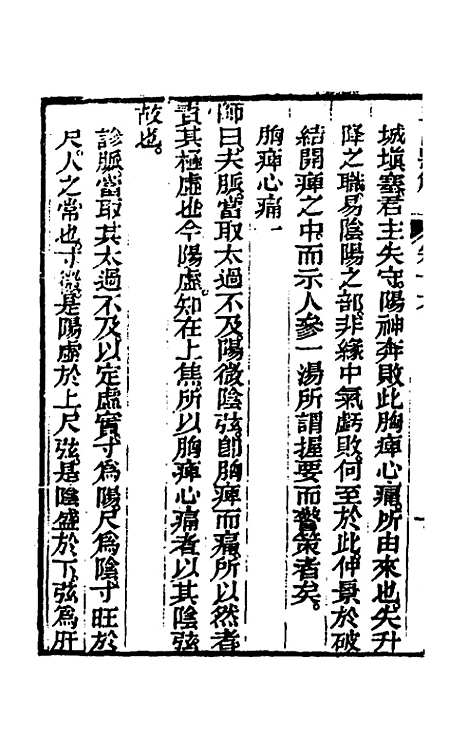 城塡塞君主失守陽神奔敗此胸痺心痛所由來也失升
降之職易陰陽之部非緣中氣虧敗何至於此仲景於破
結開痺之中而示人參一湯所謂握要而警策者矣。
胸痺心痛一
師曰夫脈當取太過不及陽微陰弦卽胸痺而痛所以然者
責其極虛也今陽虛知在上焦所以胸痺心痛者以其陰弦
故也。
診脈當取其太過不及以定虛實寸爲陽尺爲陰寸旺於
尺人之常也寸微是陽虛於上尺弦是陰盛於下弦爲肝